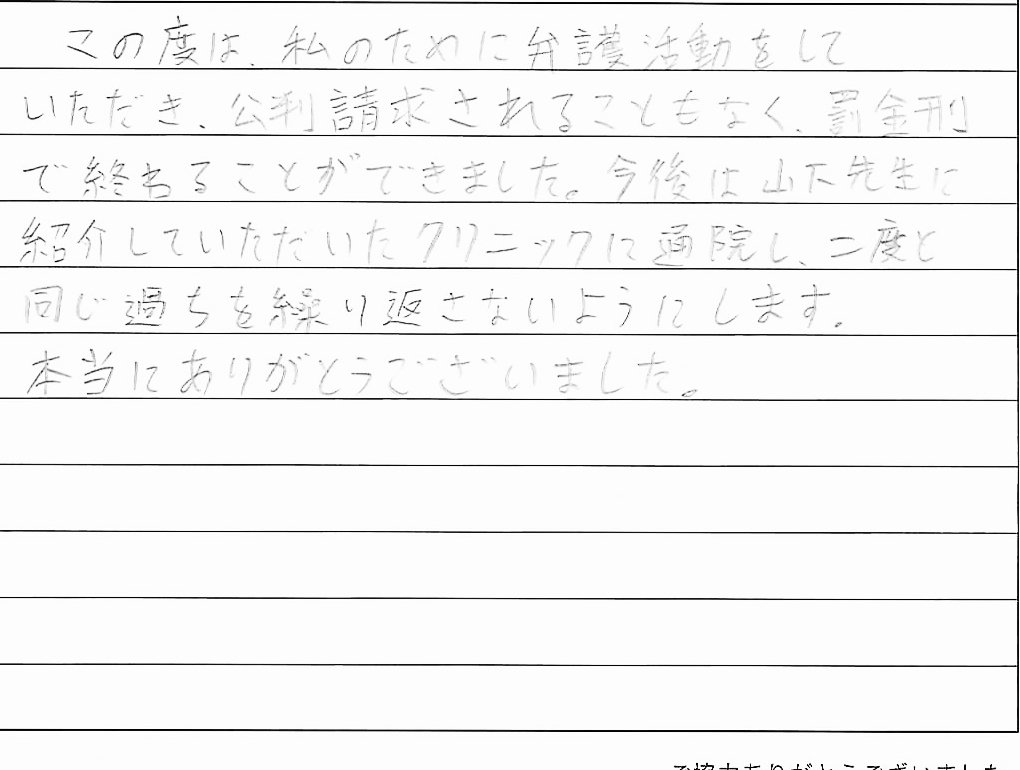 この度は、私のために弁護活動をして
いただき、公判請求されることもなく、罰金刑
で終わることができました。今後は山下先生に
紹介していただいたクリニックに通院し、二度と
同じ過ちを繰り返さないようにします。
本当にありがとうございました。
ご協力ありがとうございました